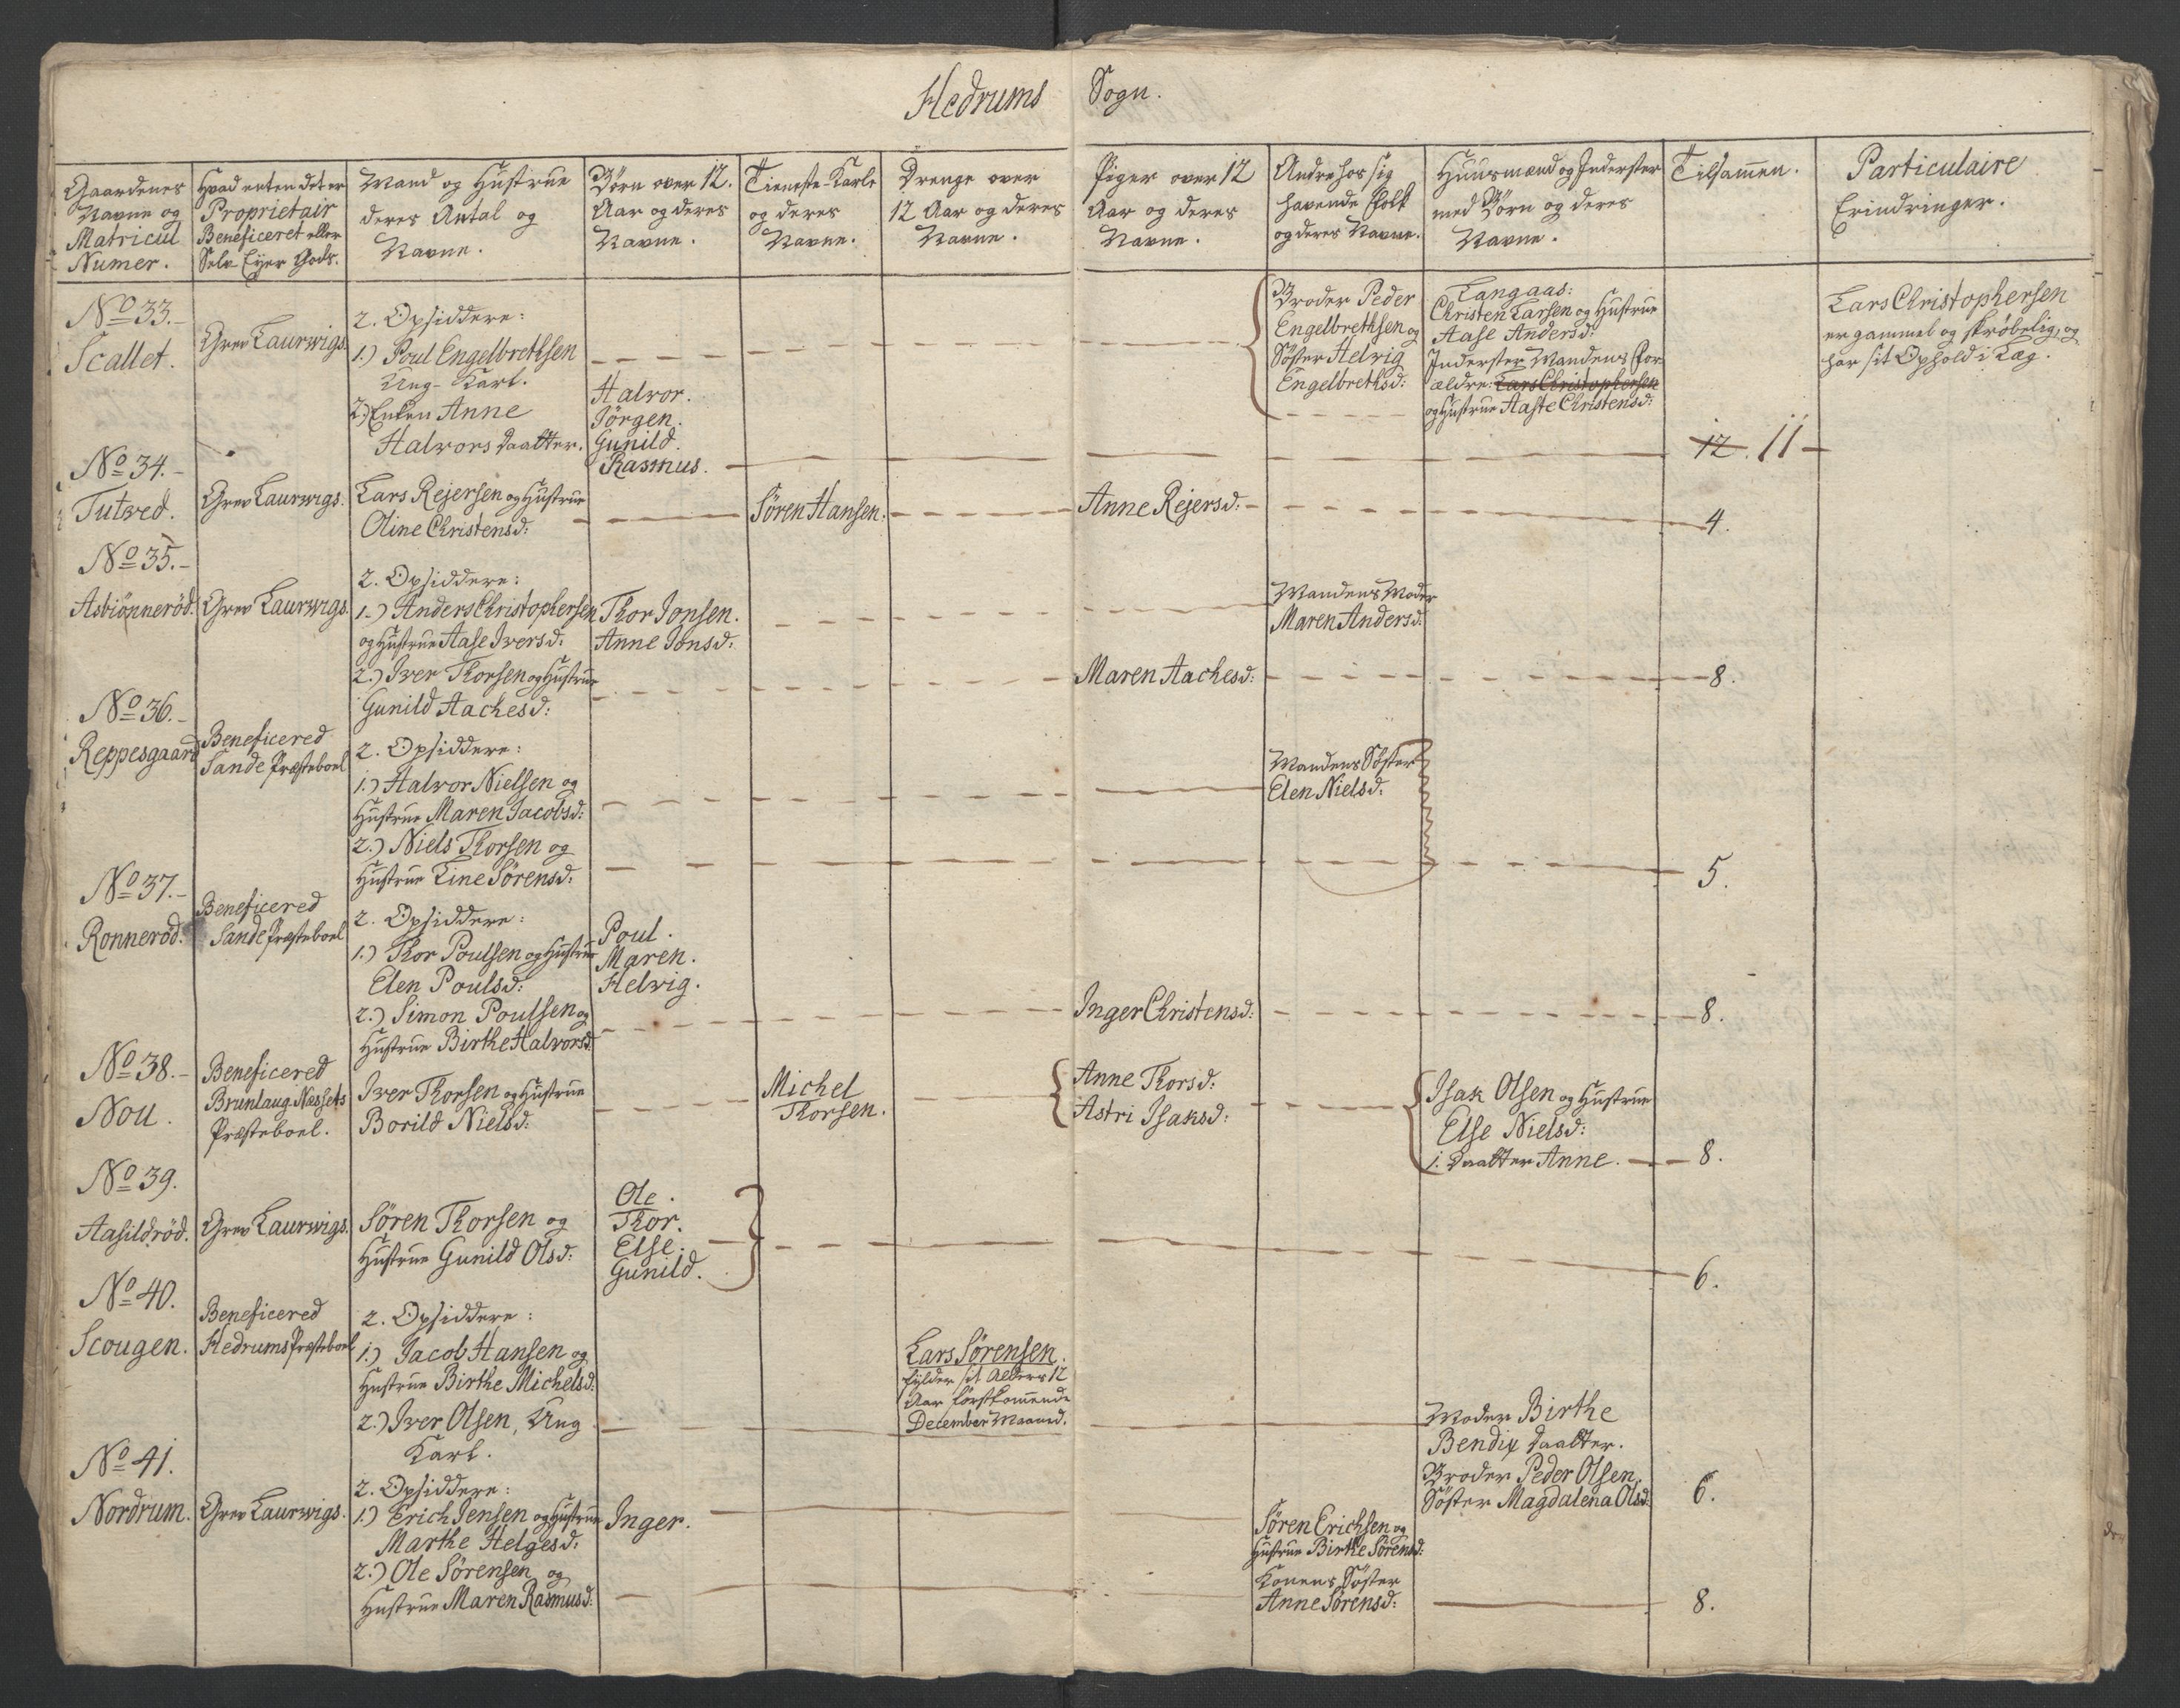 Hedrums Sogn.
Gaardenes Navne og Matricul Numer.
Hvad enten det er Proprietair Beneficeret eller Selv Eyer Gods.
Mand og Hustrue deres Antal og Navne.
Börn over 12. Aar og deres Navne.
Tieneste-Karle og deres Navne.
Drenge over 12 Aar og deres Navne.
Piger over 12 Aar og deres Navne.
Andre hos sig havende Folk og deres Navne.
Huusmænd og Inderster med Börn og deres Navne.
Tilsamen.
Particulaire Erindringer.
No 33.
Scallet.
Grev Laurwigs.
2. Opsiddere:
1.) Poul Engelbrethsen
Ung-Karl.
2.) Enken Anne
Halvors Daatter.
Halvor.
Jörgen.
Gunild.
Rasmus.
Broder Peder
Engelbrethsen og
Söster Helvig
Engelbrethsd:
Langaas:
Christen Larsen og Hustrue
Aase Andersd:
Inderster Mandens For
ældre: Lars Christophersen
og Hustrue Aaste Christensd:
12. 11
Lars Christophersen
er gammel og skröbelig, og
har sit Ophold i Læg.
No 34.
Tutved.
Grev Laurwigs.
Lars Rejersen og Hustrue
Oline Christensd:
Sören Hansen.
Anne Rejersd:
4.
No 35.
Asbiönneröd.
Grev Laurwigs.
2. Opsiddere:
1.) Anders Christophersen
og Hustrue Aase Iversd:
2.) Iver Thorsen og Hustrue
Gunild Aachesd:
Thor Jonsen.
Anne Jonsd:
Maren Aachesd:
Mandens Moder
Maren Andersd:
8.
No 36.
Reppesgaard
Beneficered
Sande Præsteboel
2. Opsiddere:
1.) Halvor Nielsen og
Hustrue Maren Jacobsd:
2.) Niels Thorsen og
Hustrue Line Sörensd:
Mandens Söster
Elen Nielsd:
5.
No 37.
Ronneröd.
Beneficered
Sande Præsteboel
2. Opsiddere:
1.) Thor Poulsen og Hustrue
Elen Poulsd:
2.) Simon Poulsen og
Hustrue Birthe Halvorsd:
Poul.
Maren.
Helvig.
Inger Christensd:
8.
No 38.
Nou.
Beneficered
Brunlaug-Næssets
Præsteboel.
Iver Thorsen og Hustrue
Borild Nielsd:
Michel
Thorsen.
Anne Thorsd:
Astri Isaksd:
Isak Olsen og Hustrue
Else Nielsd:
1. Daatter Anne.
8.
No 39.
Aasildröd.
Grev Laurwigs.
Sören Thorsen og
Hustrue Gunild Olsd:
Ole.
Thor.
Else.
Gunild.
6.
No 40.
Scougen.
Beneficered
Hedrums Præsteboel
2. Opsiddere:
1.) Jacob Hansen og
Hustrue Birthe Michelsd:
2.) Iver Olsen, Ung
Karl.
Lars Sörensen.
fylder sit Alders 12
Aar förstkommende
December Maaned.
Moder Birthe
Bendix Daatter.
Broder Peder Olsen,
Söster Magdalena Olsd:
6.
No 41.
Nordrum.
Grev Laurwigs.
2. Opsiddere:
1.) Erich Jensen og Hustrue
Marthe Helgesd:
2.) Ole Sörensen og
Hustrue Maren Rasmusd:
Inger.
Sören Erichsen og
Hustrue Birthe Sörensd:
Konens Söster
Anne Sörensd:
8.